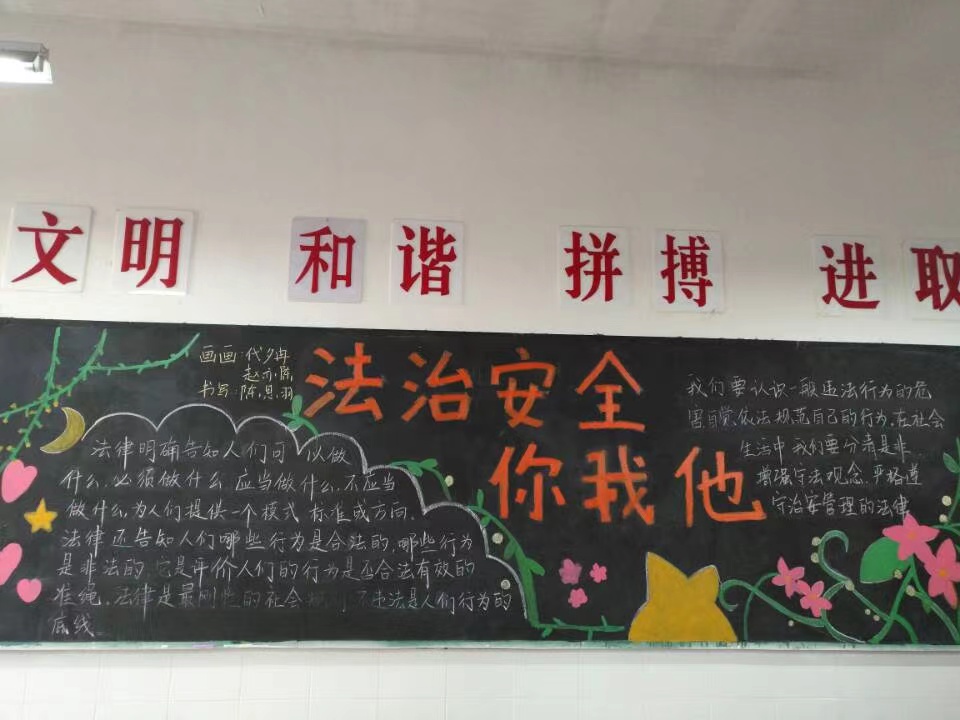 文明 和谐 拼搏 进取
画画:代夕冉
赵亦陈
书写:陈思羽
法治安全
你我他
法律明确告知人们可以做
什么,必须做什么,应当做什么,不应当
做什么,为人们提供一个模式 标准或方向.
法律还告知人们哪些行为是合法的,哪些行为
是非法的,它是评价人们的行为是否合法有效的
准绳,法律是最刚性的社会规则,不违法是人们行为的
底线
我们要认识一般违法行为的危
害自觉依法规范自己的行为,在社会
生活中 我们要分清是非,
增强守法观念,严格遵
守治安管理的法律